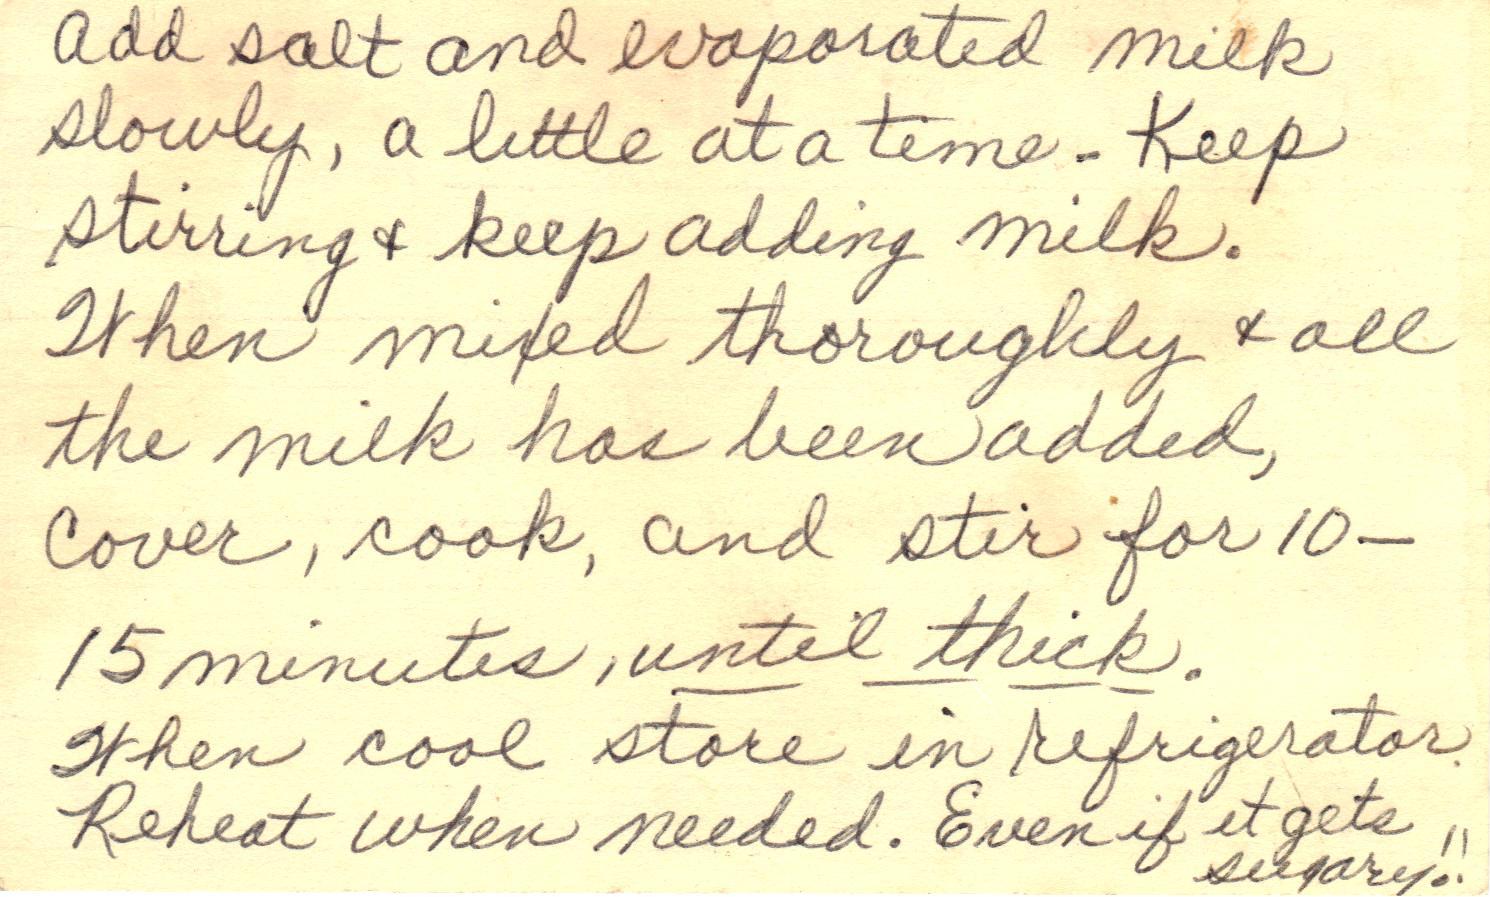 Add salt and evaporated milk
slowly, a little at a time - Keep
stirring & keep adding milk.
When mixed thoroughly & all
the milk has been added,
Cover, cook, and stir for 10-
15 minutes, until thick.
When cool store in refrigerator.
Reheat when needed. Even if it gets
sugary!!